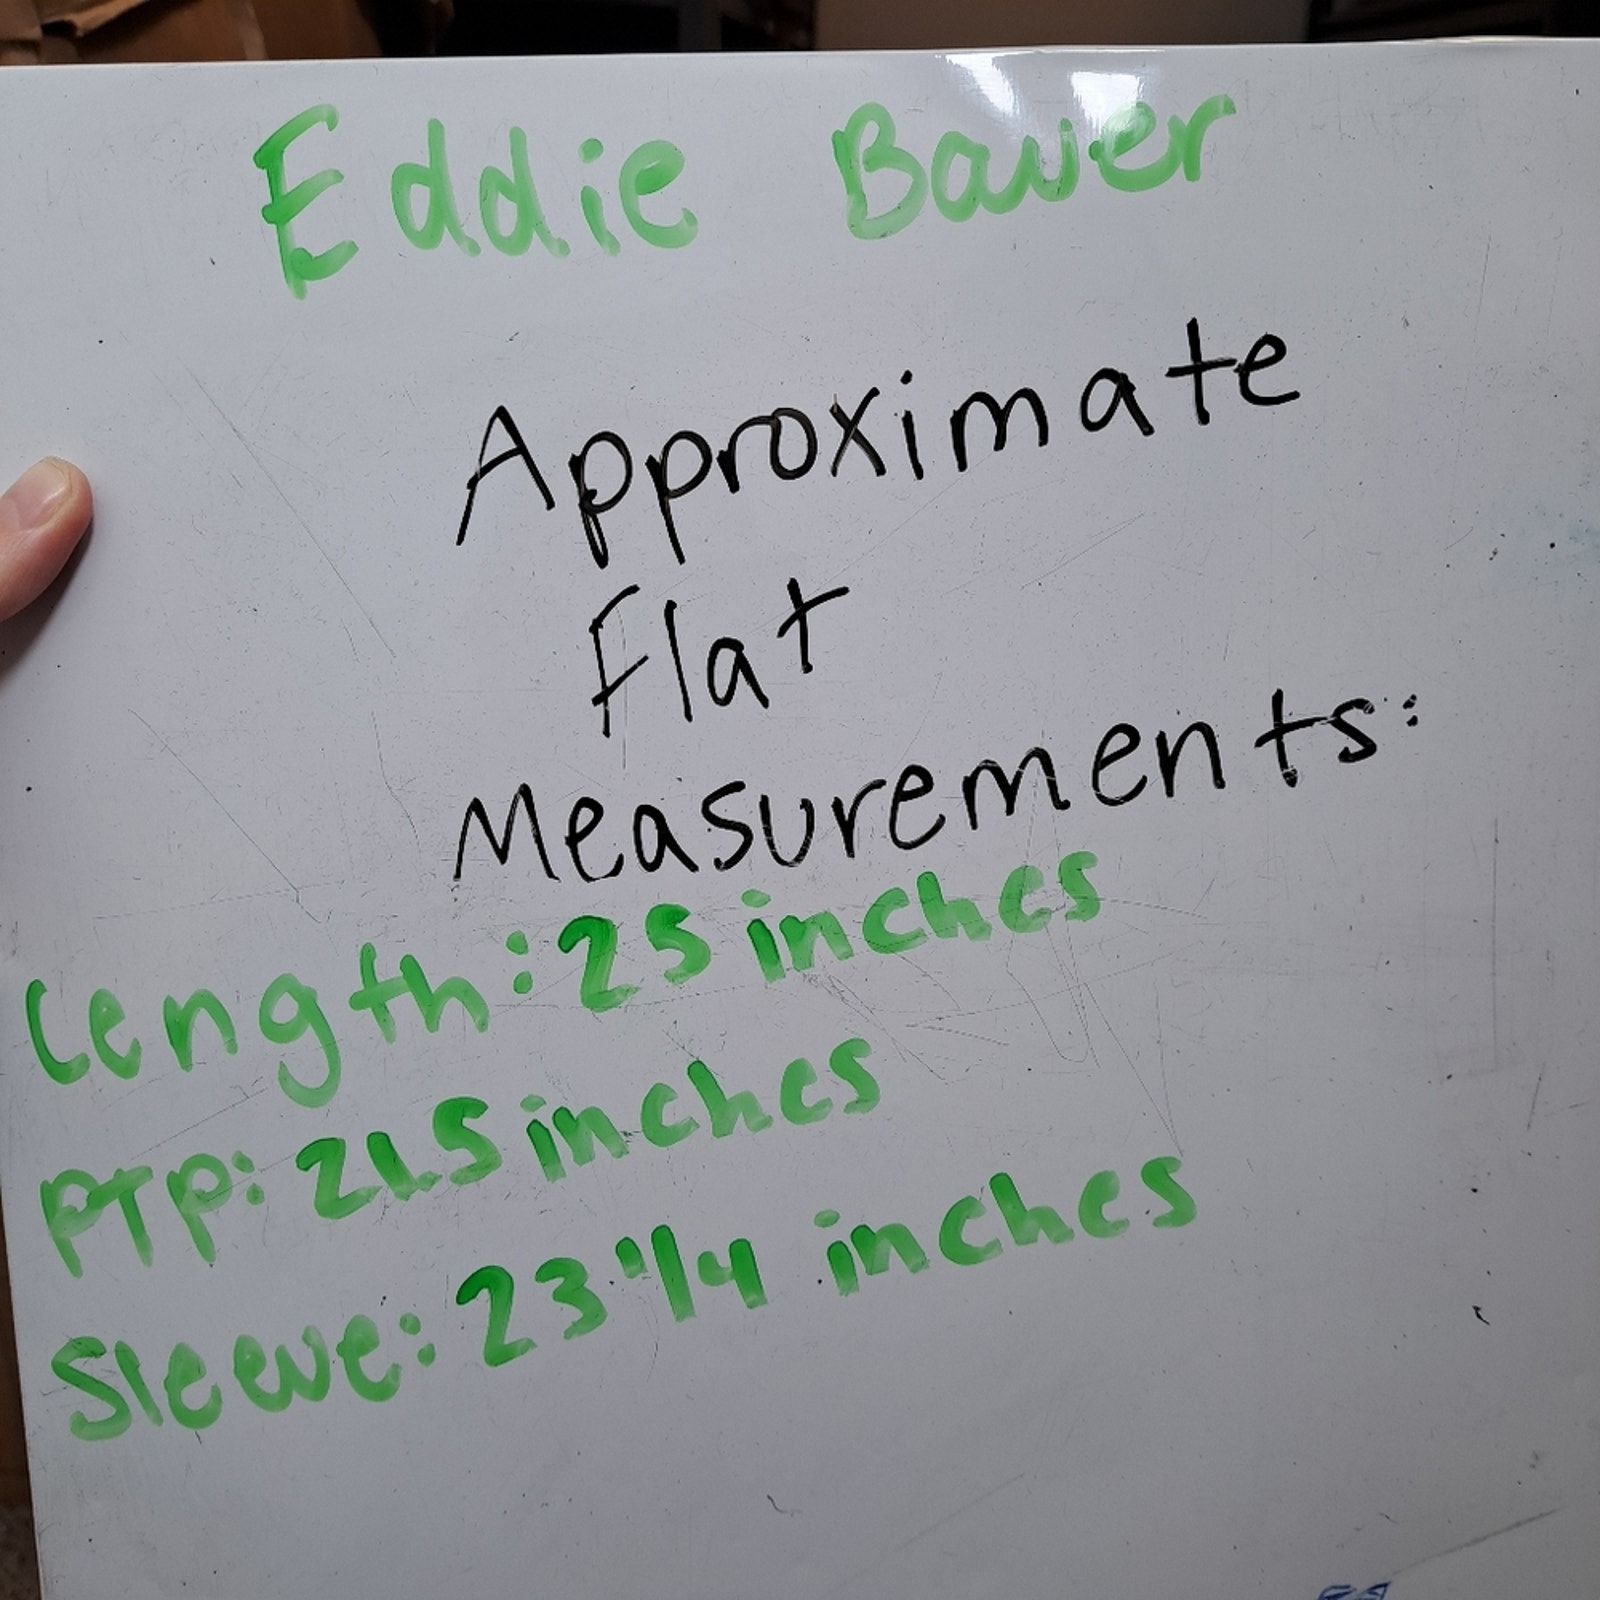 Eddie Bauer
Approximate
Flat
Measurements:
Length: 25 inches
PTP: 21.5 inches
Sleeve: 23 1/4 inches